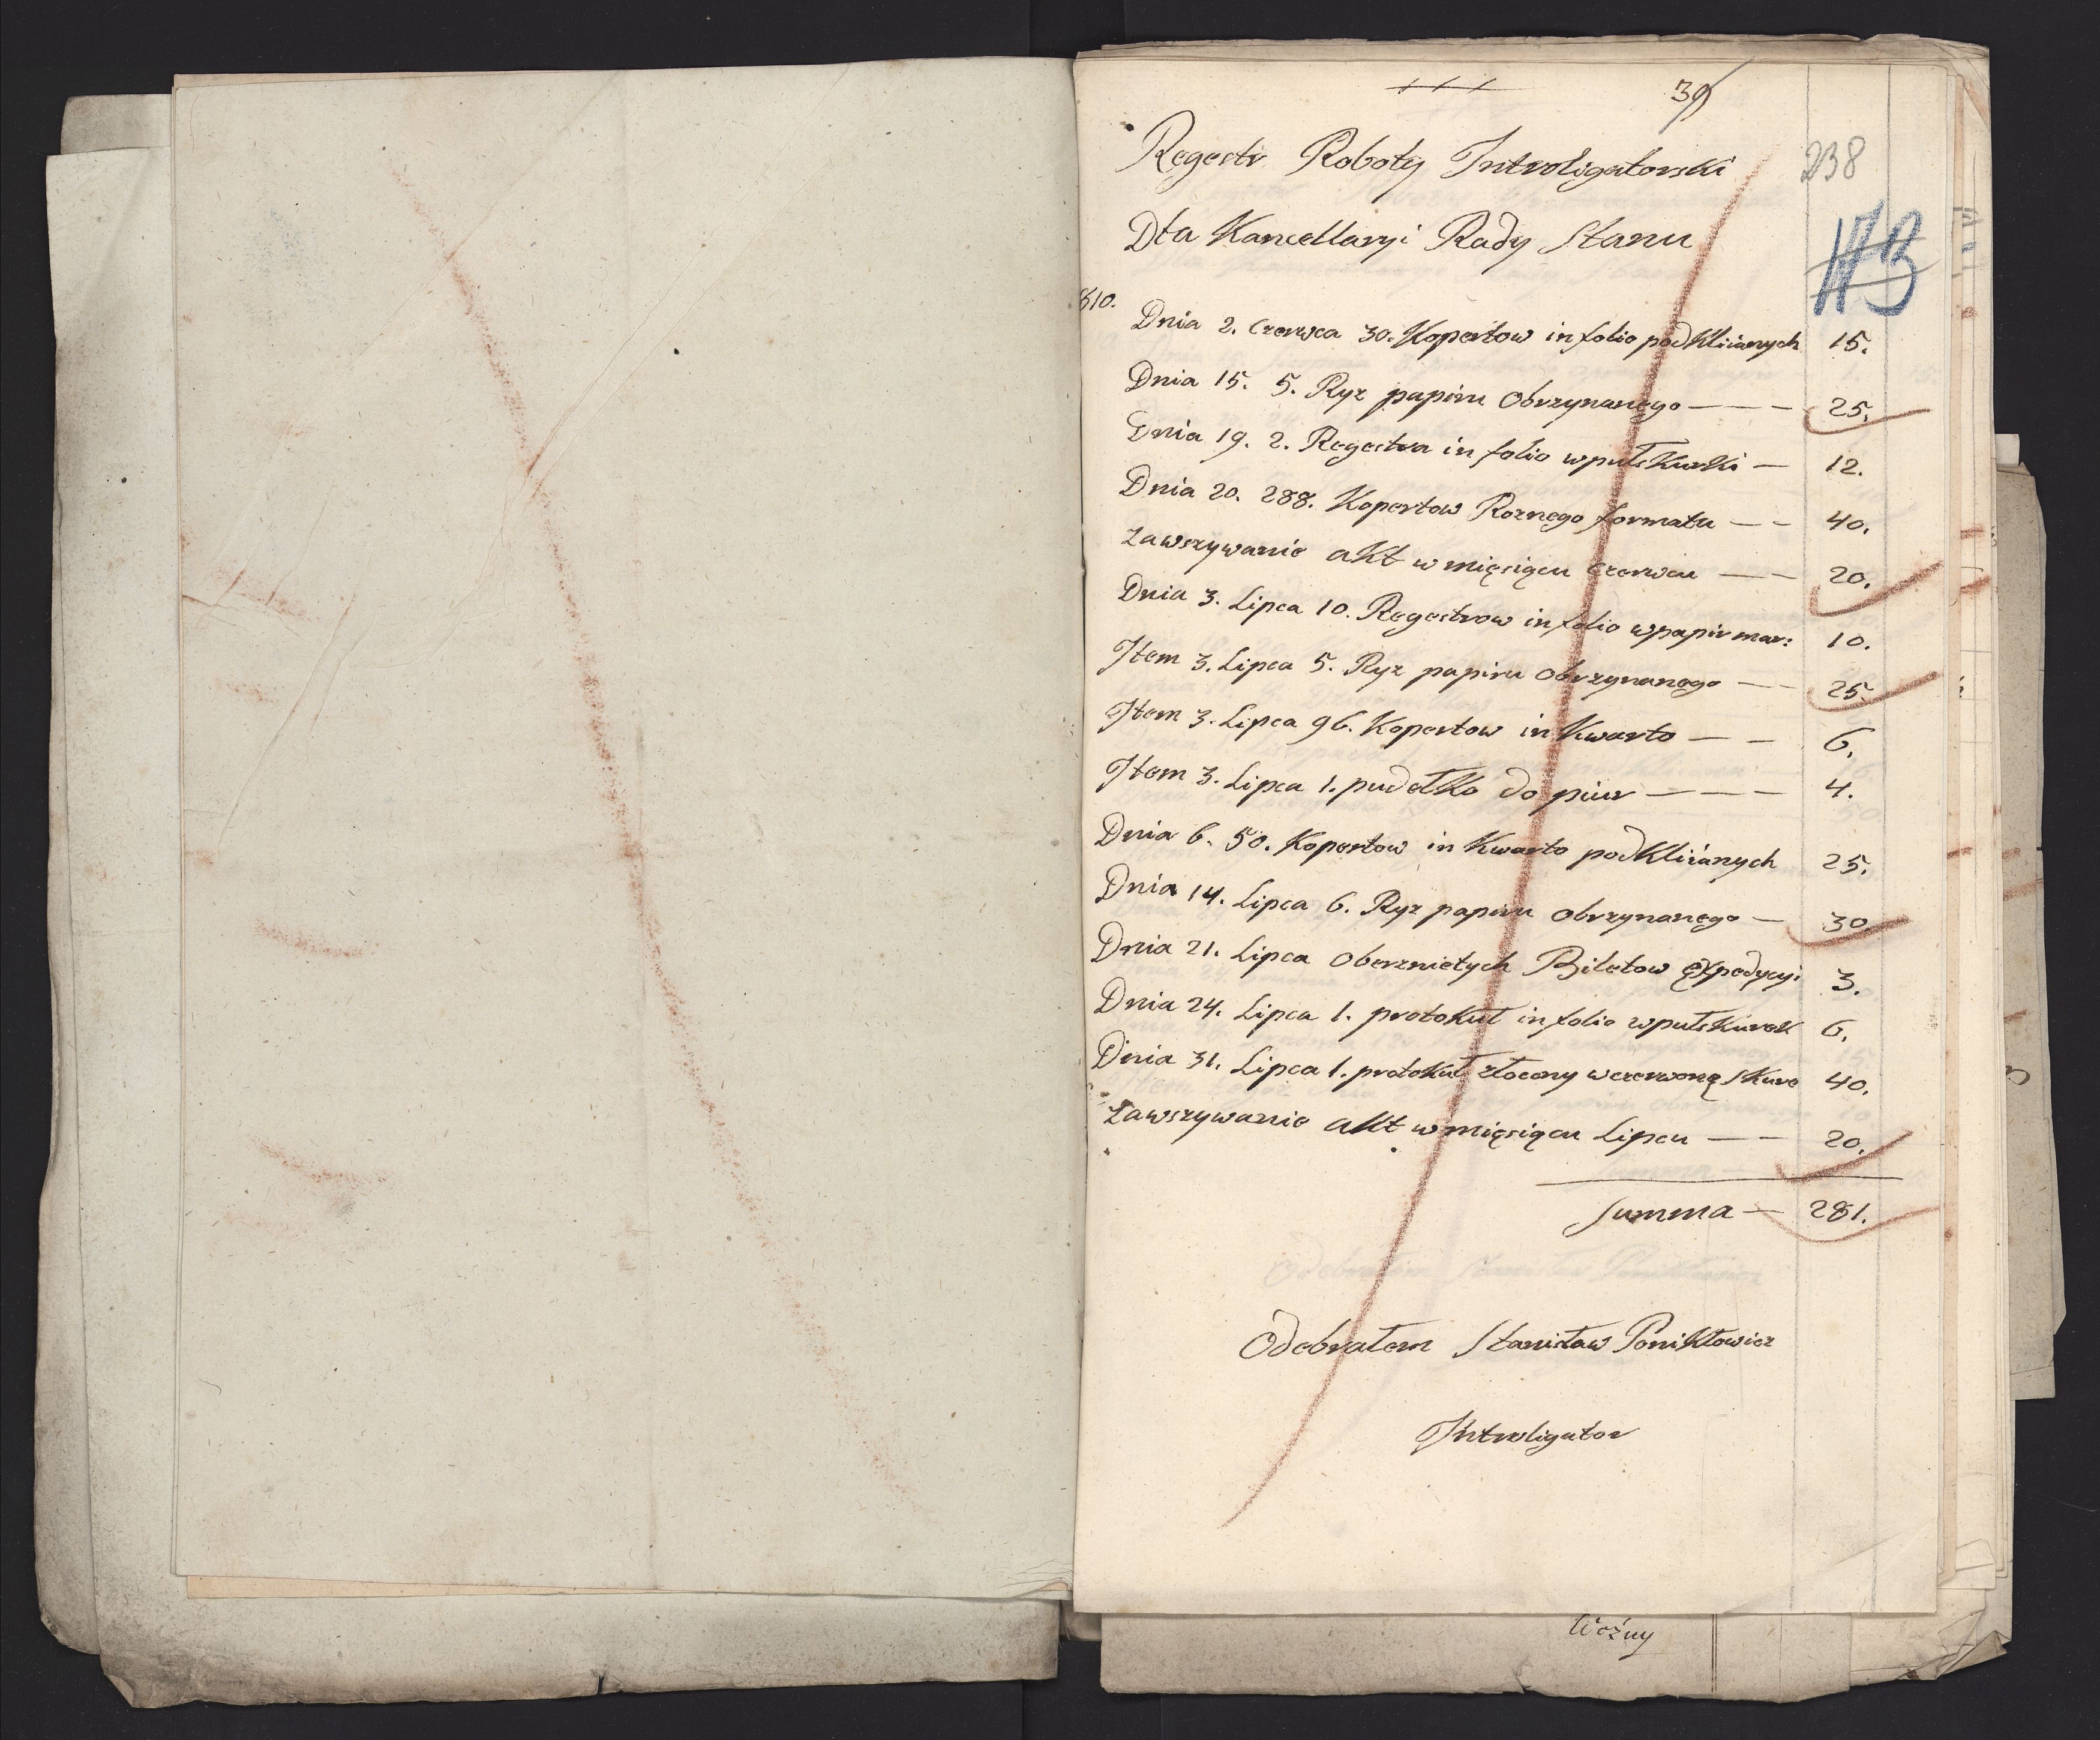 39
238
113
Regestr Roboty Introligatorski
Dla Kancellaryi Rady Stanu
810.
Dnia 2. Czerwca 30. Kopertow in folio podkliianych 15.
Dnia 15. 5. Ryz papiru obrzynanego — — — 25.
Dnia 19. 2. Regestra in folio wpułskurki — 12.
Dnia 20. 288. Kopertow Roznego formatu — — 40.
Zawszywanie akt w mięsiącu czerwcu — — 20.
Dnia 3. Lipca 10. Regestrow in folio wpapir mar: 10.
Item 3. Lipca 5. Ryz papiru obrzynanego — — 25.
Item 3. Lipca 96. Kopertow in kwarto — — 6.
Item 3. Lipca 1. pudełko do piur — — — 4.
Dnia 6. 50. Kopertow in kwarto podkliianych 25.
Dnia 14. Lipca 6. Ryz papiru obrzynanego — 30.
Dnia 21. Lipca oberznietych Biletow expedycyi 3.
Dnia 24. Lipca 1. protokuł in folio wpułskurek 6.
Dnia 31. Lipca 1. protokuł złocony wczerwonę skure 40.
Zawszywanie akt w mięsiącu Lipcu — — 20.
Summa — 281.
Odebrałem Stanisław Ponikłowicz
Introligator
Woźny